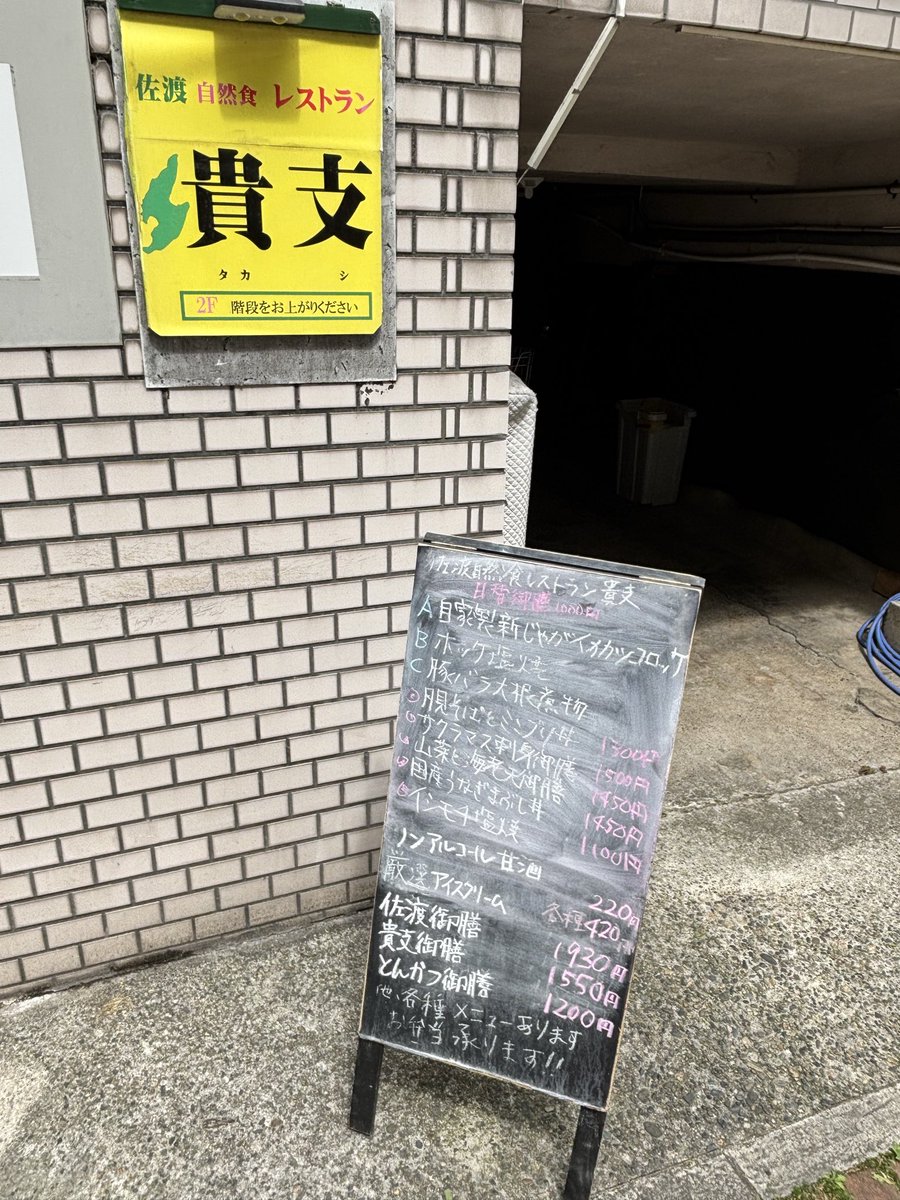 佐渡 自然食 レストラン
貴支
タカ シ
2F 階段をお上がりください
佐渡自然食レストラン貴支
日替御膳 1000円
A 自家製新じゃがイカツコロッケ
B ホッケ塩焼
C 豚バラ大根煮物
月見そばとミニブリ丼 1300円
サクラマス刺身御膳 1500円
山菜と海老天御膳 1450円
国産うなぎまぶし丼 1450円
イシモチ塩焼 1100円
ノンアルコール甘酒 220円
厳選アイスクリーム 各種420円
佐渡御膳 1930円
貴支御膳 1550円
とんかつ御膳 1200円
他、各種メニューあります
お弁当承ります!!